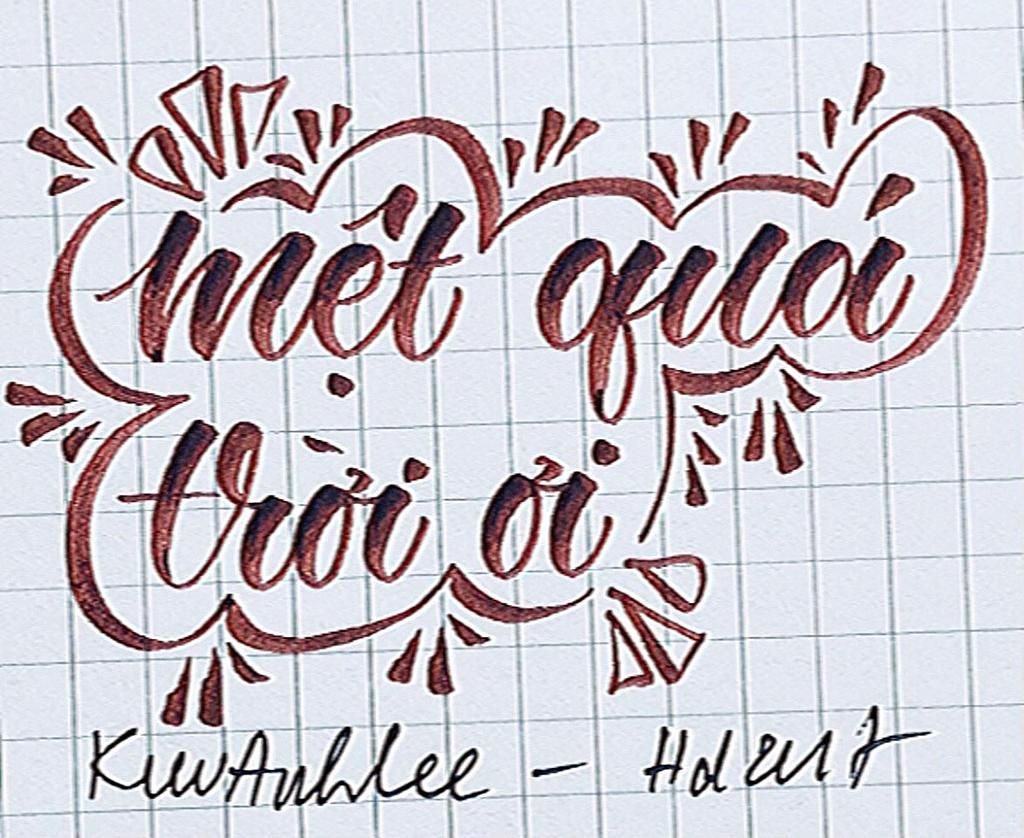 mệt quá
trời ơi
KimAnhLee -